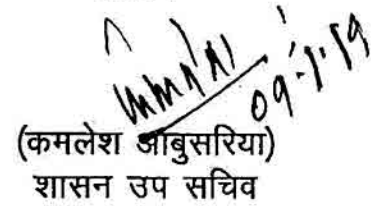 09.1.19
(कमलेश आबुसरिया)
शासन उप सचिव